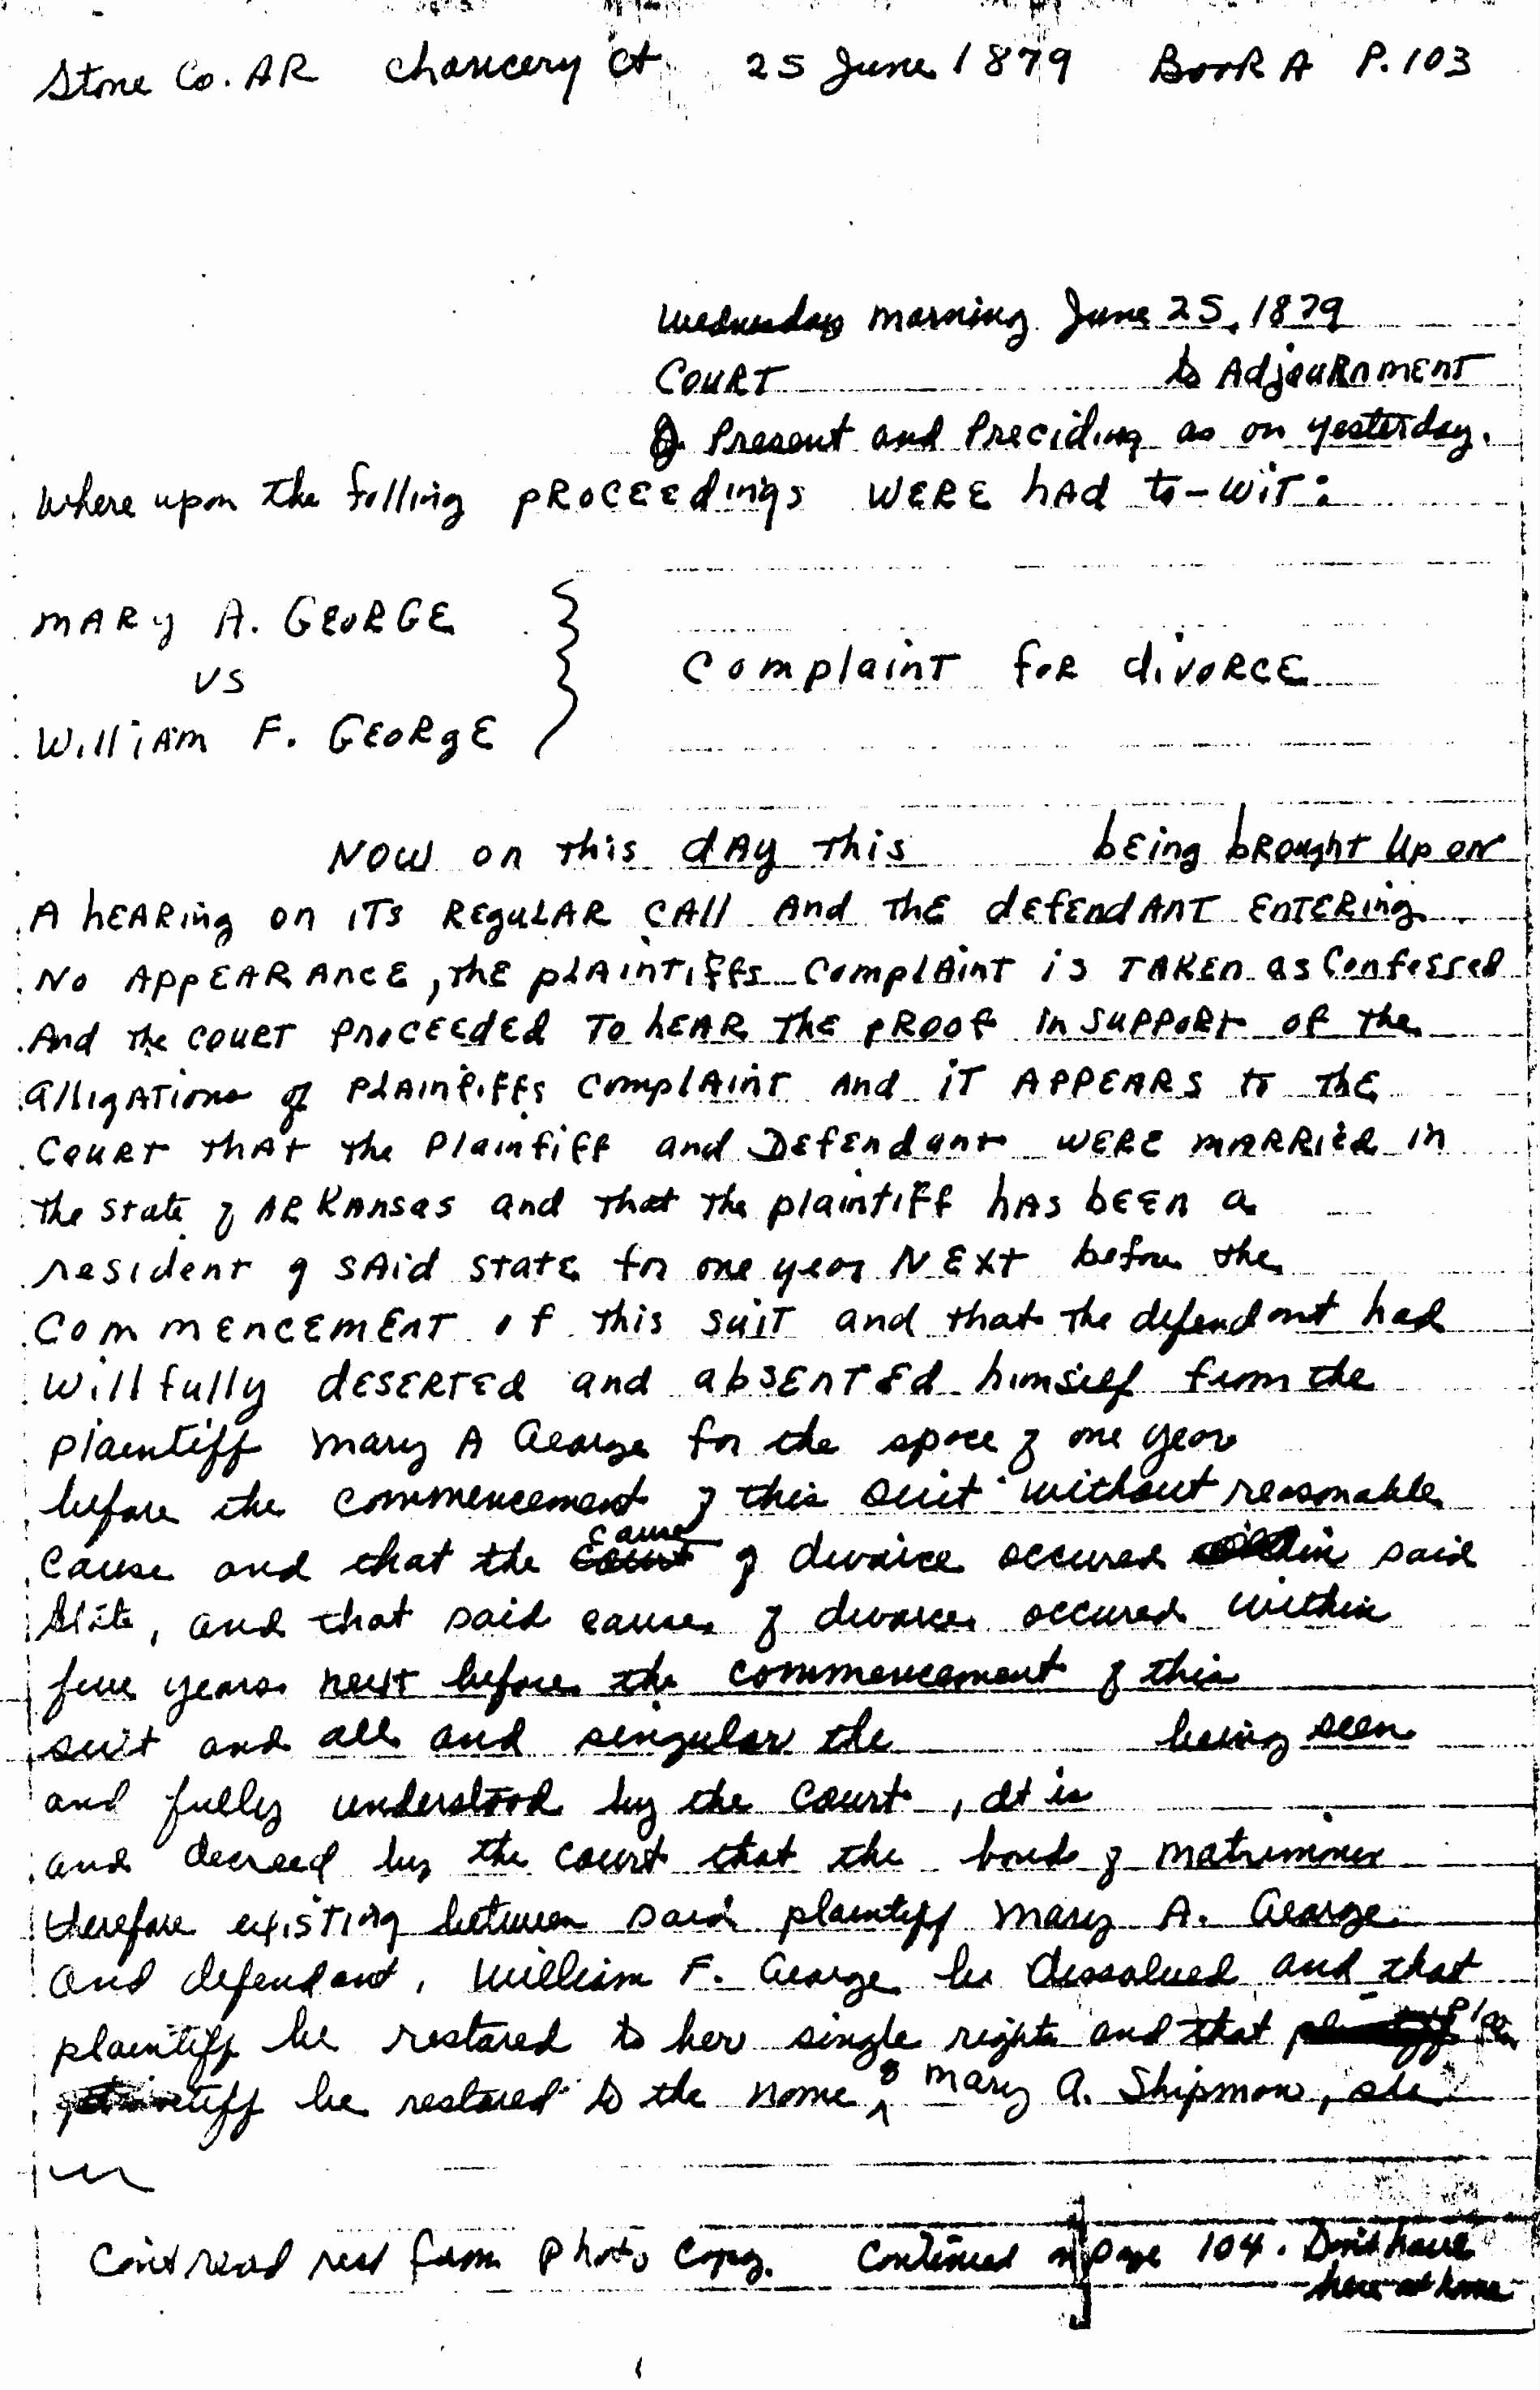 Stone Co. AR chancery Ct 25 June 1879 Book A P. 103
Wednesday morning June 25, 1879
COURT to AdjouRnmENT
J. Present and Preciding as on yesterday.
Where upon the folling pROCEEdings WERE hAd to-wiT:
MARy A. GEORGE
VS
WilliAm F. GEORgE
ComplainT foR divoRCE
NOW on this dAy This bEing bROught Up on
A hEARing on ITs REguLAR CAll And ThE dEfEndANT EnTERing
No AppEARAncE, ThE pLAinTiffs ComplAinT is TAKEn as Confessed
And the COURT PROCEEdEd To hEAR ThE pROOf in SuppoRt of the
allIgATions of PLAinTiffs ComplAinT And iT APPEARS to ThE
CouRt ThAt the Plaintiff and DEfEndant WERE mARRiEd in
the State of ARKAnsas and that The plaintiff hAs bEEn a
resident of SAid State for one year NExt before the
CommEncEmEnT of this SuiT and that The defendant had
Willfully dESERTEd and abSEnTEd himself from the
plaintiff Mary A George for the space of one year
before the commencement of this suit without reasonable
cause and that the Cause of divorce occured within said
State, and that said cause of divorce occured within
five years next before the commencement of this
suit and all and singular the being seen
and fully understood by the Court, It is
and decreed by the court that the bonds of matrimoney
therefore existing between said plaintiff Mary A. George
and defendant, William F. George be dissolved and that
plaintiff be restored to her single rights and that plain
tiff be restored to the name of Mary A. Shipman, she
Can't read rest from photo copy. Continued on page 104. Don't have
here at home